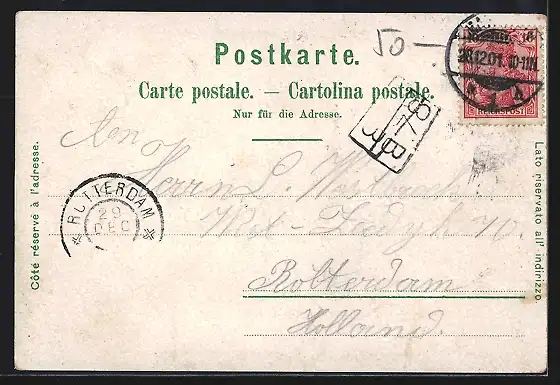 50 —
Postkarte.
Carte postale. — Cartolina postale.
Nur für die Adresse.
10
28.12.01. 10-11
REICHSPOST
ROTTERDAM
29
DEC
Côté réservé à l'adresse.
Lato riservato all' indirizzo.
An
Herrn L.
70.
Rotterdam
Holland.